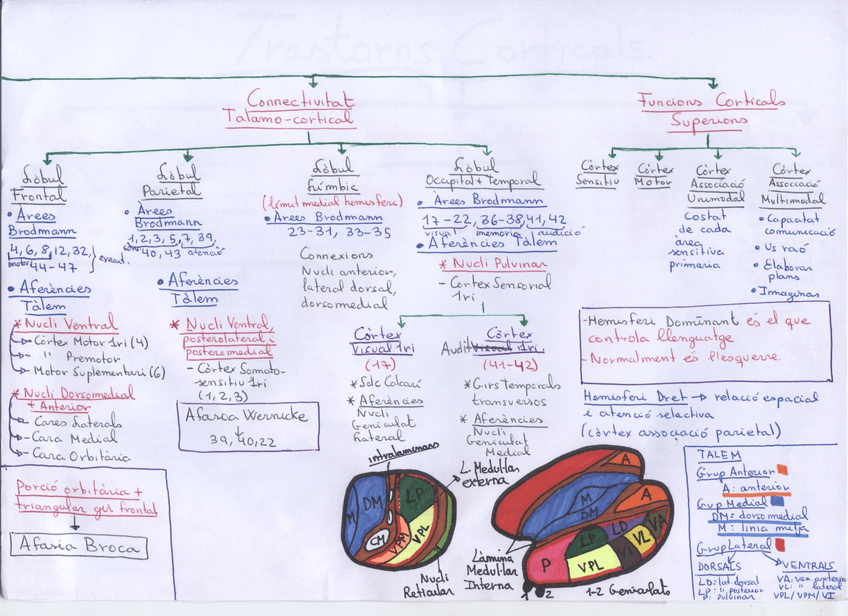 Connectivitat
Talamo-cortical
Funcions Corticals
Superiors
Lòbul
Frontal
• Àrees
Brodmann
4, 6, 8, 12, 32,
motor 44-47
• Aferències
Tàlem
* Nucli Ventral
Còrtex Motor 1ri (4)
" Premotor
Motor Suplementari (6)
* Nucli Dorsomedial
+ Anterior
Cares Laterals
Cara Medial
Cara Orbitària
Porció orbitària +
triangular gir frontal
Afasia Broca
Lòbul
Parietal
• Àrees
Brodmann
1, 2, 3, 5, 7, 39,
40, 43 atenció
• Aferències
Tàlem
* Nucli Ventral,
posterolateral i
posteromedial
- Còrtex Somato-
sensitiu 1ri
(1, 2, 3)
Afasia Wernicke
39, 40, 22
Lòbul
Límbic
(límit medial hemisferi)
• Àrees Brodmann
23-31, 33-35
Connexions
Nucli anterior,
lateral dorsal,
dorsomedial
Lòbul
Occipital + Temporal
• Àrees Brodmann
17-22, 36-38, 41, 42
visual memoria audició
• Aferències Tàlem
* Nucli Pulvinar
- Cortex Sensorial
1ri
Còrtex
Visual 1ri
(17)
* Solc Calcarí
* Aferències
Nucli
Geniculat
Lateral
Còrtex
Audit Visual 1ri.
(41-42)
* Girs Temporals
transversos
* Aferències
Nucli
Geniculat
Medial
Còrtex
Sensitiu
Còrtex
Motor
Còrtex
Associació
Unimodal
Costat
de cada
àrea
sensitiva
primaria
Còrtex
Associació
Multimodal
• Capacitat
comunicació
• Us raó
• Elaborar
plans
• Imaginar
- Hemisferi Dominant és el que
controla llenguatge
- Normalment és l'esquerre.
Hemisferi Dret → relació espacial
i atenció selectiva
(còrtex associació parietal)
intralaminars
L. Medul·lar
externa
M
DM
LP
CM
VPM
VPL
Nucli
Reticular
Làmina
Medul·lar
Interna
A
M
DM
A
P
LP
LD
VPL
VI
VL
VA
1
2
1-2 Geniculats
TALEM
Grup Anterior
A: anterior
Grup Medial
DM: dorsomedial
M: linia mitja
Grup Lateral
DORSALS
LD: lat dorsal
LP: l. posterior
P: pulvinar
VENTRALS
VA: ven. anterior
VL: " lateral
VPL/VPM/VI